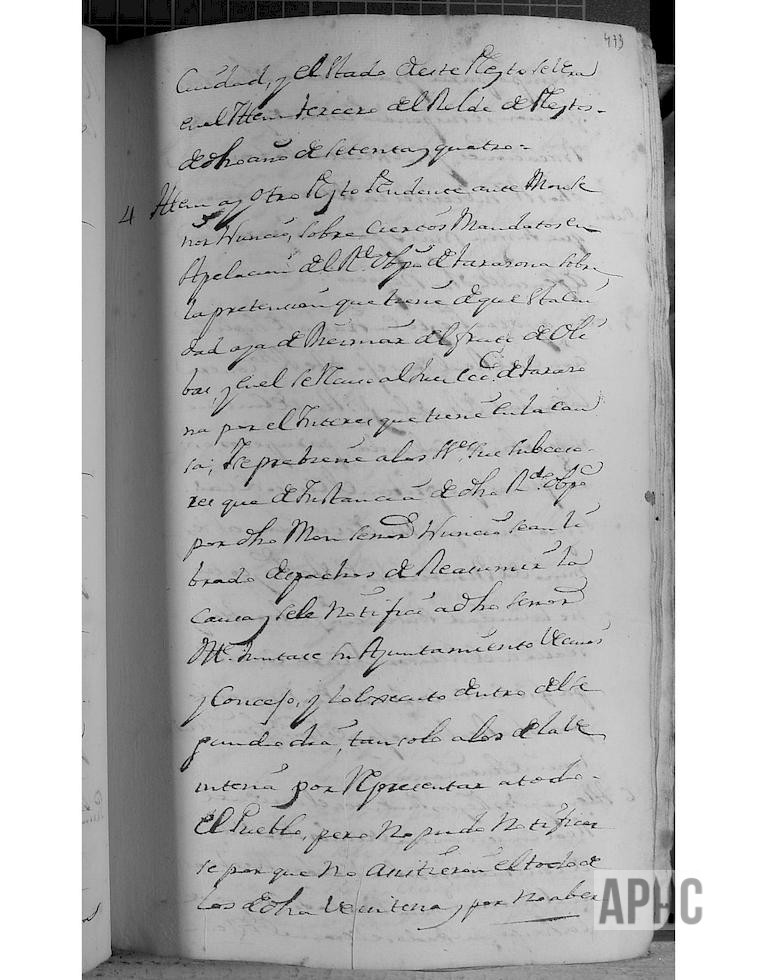 473
Ciudad, y el Stado deeste Pleyto se vera
en el Item tercero del Rolde de Pleytos -
de dho año de setenta y quatro =
4 Item ay otro Pleyto Pendente ante Monse
ñor Nuncio, sobre ciertos Mandatos en
Apelacion del Rdo. Obpo. de Tarazona sobre
la pretension que tiene de que esta Ciu
dad aya de Diezmar del fruto de Oli
bas, y en el se
na por el Interes que tiene en la Cau
sa; Se prebiene a los SSres. sus subceso-
res que de Instancia de dho Rdo. Obpo.
por dho Monseñor Nuncio se an li
brado despachos de Reasumir la
Causa y se le Notifico a dho Senor
Juntase su Ayuntamiento Vecinos
y Concejo, y lo executo dentro del se
gundo dia, tan solo a los de la Ve
intena por Representar a todo -
El Pueblo, pero No pudo Notificar
se por que No asistieron el todo de
los de dha Veintena, y por No aber
APHC